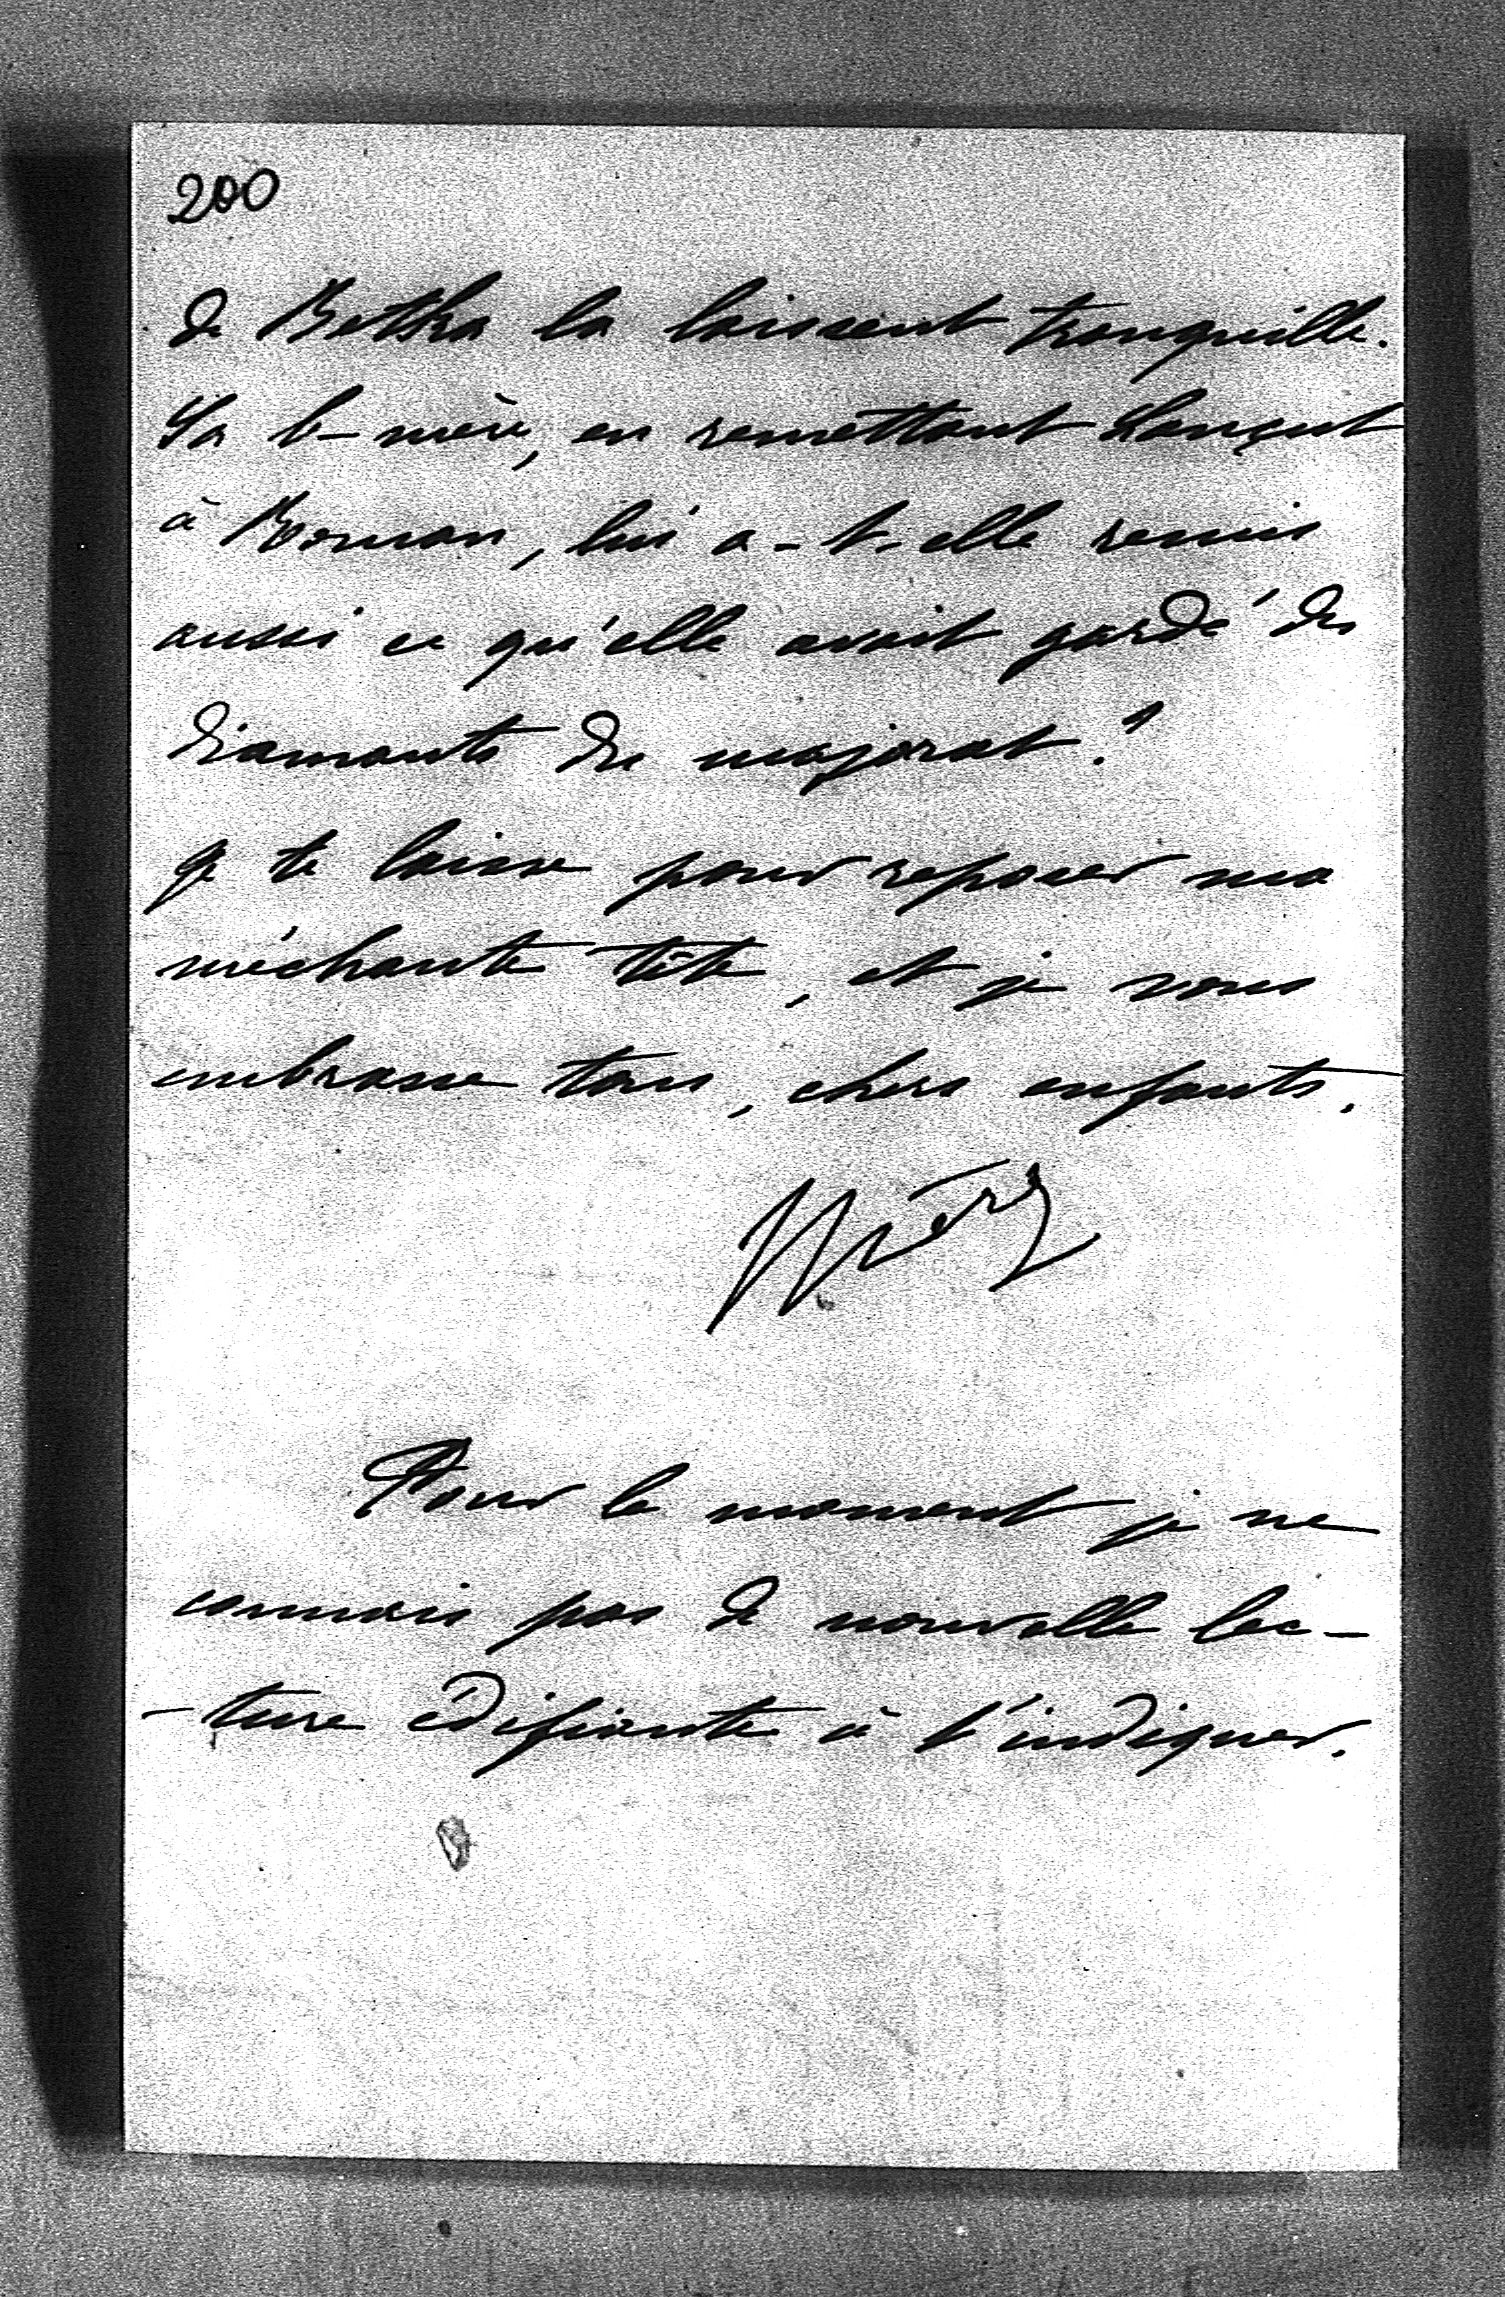 200
de Betka la laissent tranquille.
Sa b-mère, en remettant Lançut
à Roman, lui a-t-elle remis
aussi ce qu'elle avait gardé des
diamants du majorat?
Je te laisse pour reposer ma
méchante tête, et je vous
embrasse tous, chers enfants.
Pour le moment je ne
connais pas de nouvelle lec-
-ture édifiante à t'indiquer.